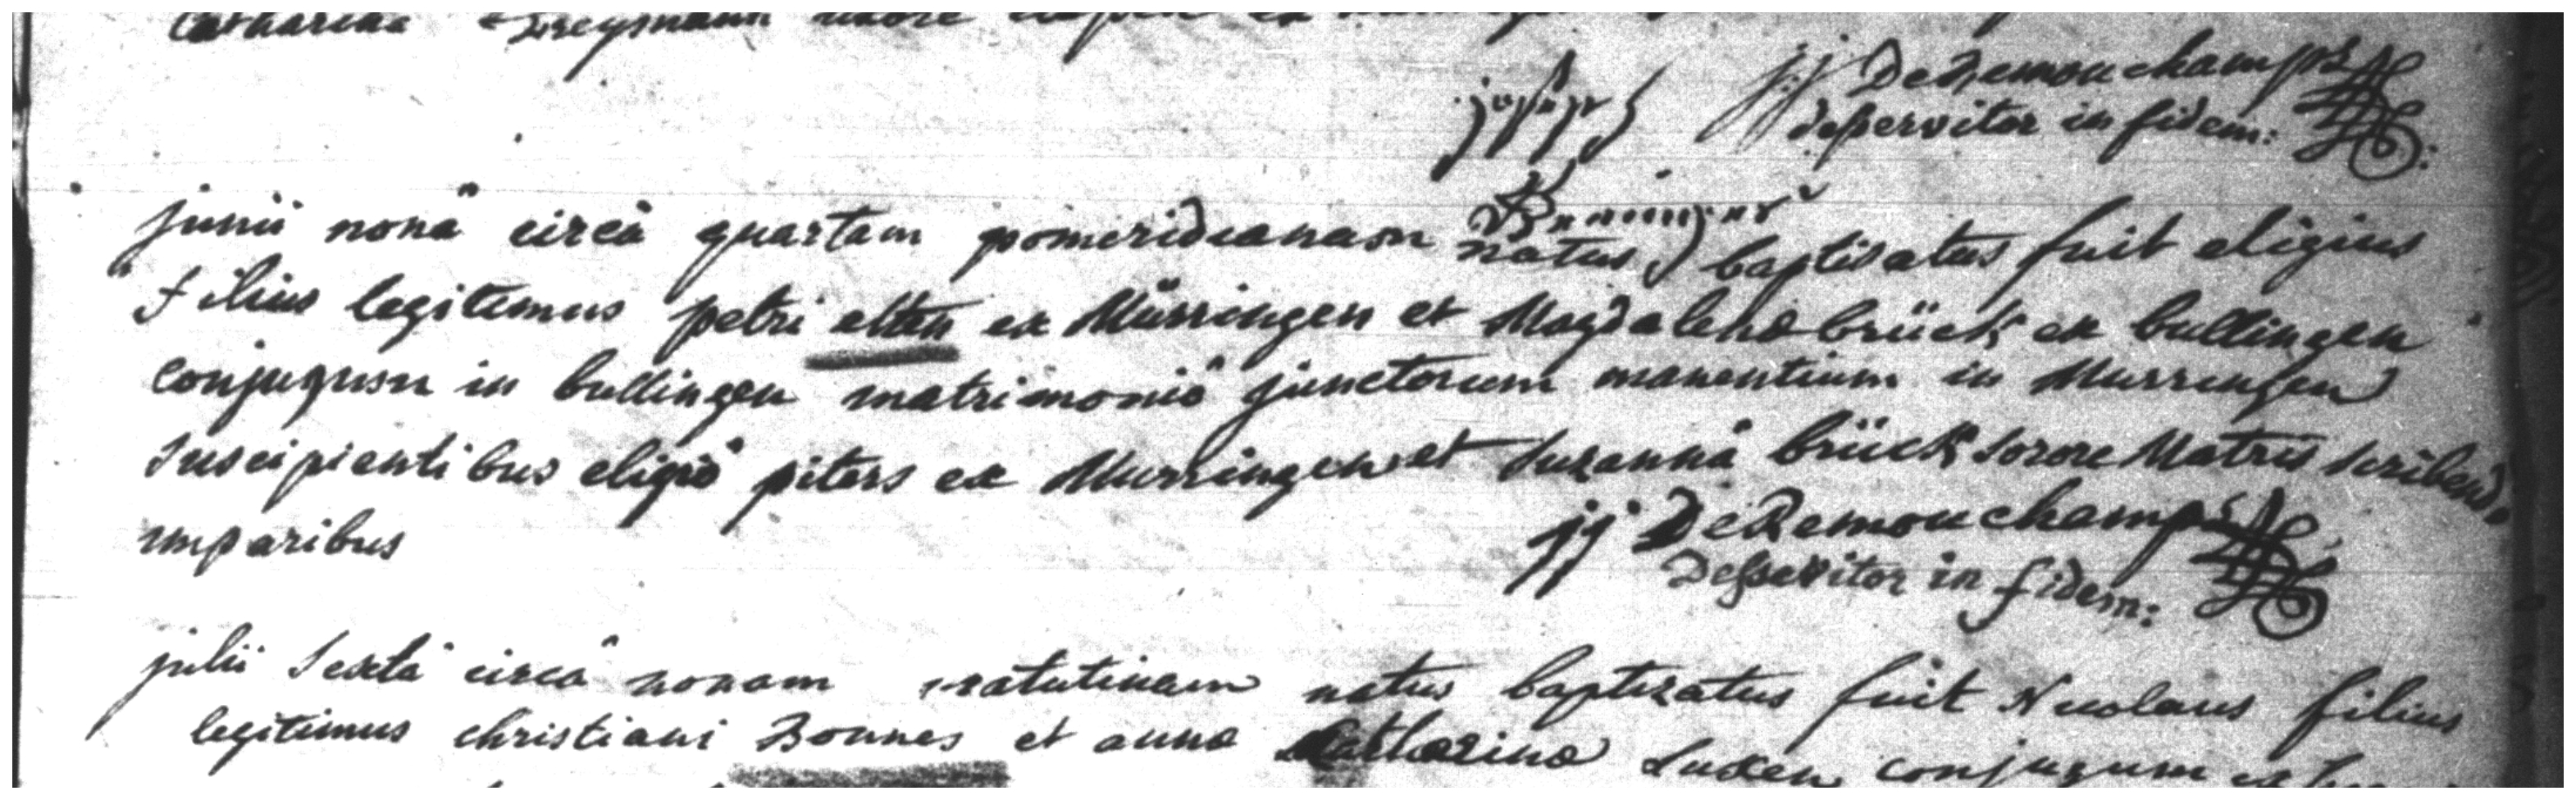 Catharina Dreysmann uxore
joseph jj DeRemouchamps
deservitor in fidem:
Breüninger
junii nonâ circâ quartam pomeridianam natus, baptisatus fuit eligius
Filius legitimus petri elten ex Mürringen et Magdalena brück ex bullingen
conjugum in bullingen matrimoniô junctorum manentium in Murringen
suscipientibus eligiô piters ex Murringen et suzannâ brück sorore Matris scribend.
imparibus
jj DeRemouchamps
Desservitor in fidem:
julii sextâ circâ nonam matutinam natus baptizatus fuit Nicolaus filius
legitimus christiani Bonnes et anna Catharina Luxen conjugum